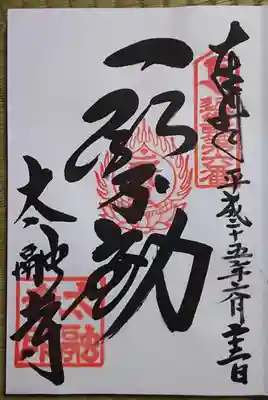 奉拝 平成二十五年六月二十三日
一願不動
太融寺